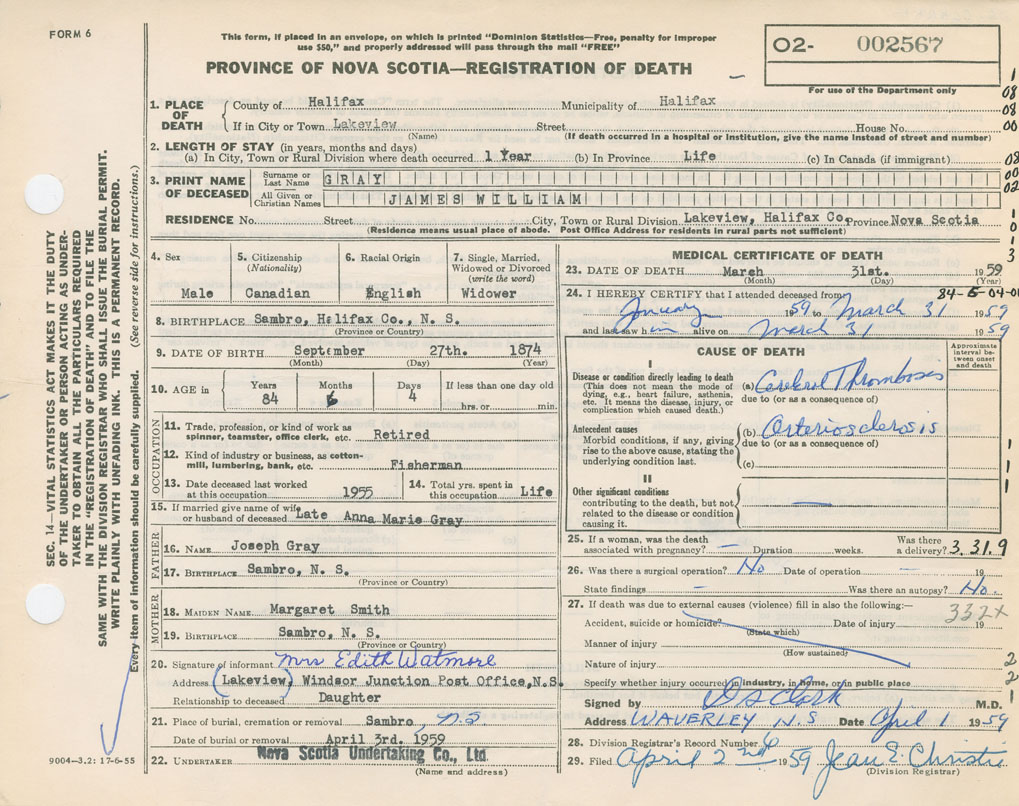 FORM 6
This form, if placed in an envelope, on which is printed "Dominion Statistics—Free, penalty for improper
use $50," and properly addressed will pass through the mail "FREE"
PROVINCE OF NOVA SCOTIA—REGISTRATION OF DEATH
02- 002567
For use of the Department only
SEC. 14—VITAL STATISTICS ACT MAKES IT THE DUTY
OF THE UNDERTAKER OR PERSON ACTING AS UNDER-
TAKER TO OBTAIN ALL THE PARTICULARS REQUIRED
IN THE "REGISTRATION OF DEATH" AND TO FILE THE
SAME WITH THE DIVISION REGISTRAR WHO SHALL ISSUE THE BURIAL PERMIT.
WRITE PLAINLY WITH UNFADING INK. THIS IS A PERMANENT RECORD.
Every item of information should be carefully supplied. (See reverse side for instructions.)
1. PLACE OF DEATH
County of Halifax Municipality of Halifax
If in City or Town Lakeview Street House No.
(Name) (If death occurred in a hospital or institution, give the name instead of street and number)
2. LENGTH OF STAY (in years, months and days)
(a) In City, Town or Rural Division where death occurred 1 Year (b) In Province Life (c) In Canada (if immigrant)
3. PRINT NAME OF DECEASED
Surname or Last Name GRAY
All Given or Christian Names JAMES WILLIAM
RESIDENCE No. Street City, Town or Rural Division Lakeview, Halifax Co. Province Nova Scotia
(Residence means usual place of abode. Post Office Address for residents in rural parts not sufficient)
4. Sex
Male
5. Citizenship
(Nationality)
Canadian
6. Racial Origin
English
7. Single, Married,
Widowed or Divorced
(write the word)
Widower
8. BIRTHPLACE Sambro, Halifax Co., N. S.
(Province or Country)
9. DATE OF BIRTH September 27th. 1874
(Month) (Day) (Year)
10. AGE in Years Months Days If less than one day old
84 6 4 hrs. or min.
OCCUPATION
11. Trade, profession, or kind of work as
spinner, teamster, office clerk, etc. Retired
12. Kind of industry or business, as cotton-
mill, lumbering, bank, etc. Fisherman
13. Date deceased last worked
at this occupation 1955
14. Total yrs. spent in
this occupation Life
15. If married give name of wife
or husband of deceased Late Anna Marie Gray
FATHER
16. NAME Joseph Gray
17. BIRTHPLACE Sambro, N. S.
(Province or Country)
MOTHER
18. MAIDEN NAME Margaret Smith
19. BIRTHPLACE Sambro, N. S.
(Province or Country)
20. Signature of informant Mrs Edith Watmore
Address (Lakeview) Windsor Junction Post Office, N.S.
Relationship to deceased Daughter
21. Place of burial, cremation or removal Sambro, N.S
Date of burial or removal April 3rd. 1959
22. UNDERTAKER Nova Scotia Undertaking Co., Ltd.
(Name and address)
9004—3.2: 17-6-55
MEDICAL CERTIFICATE OF DEATH
23. DATE OF DEATH March 31st. 1959
(Month) (Day) (Year)
84-6-04-01
24. I HEREBY CERTIFY that I attended deceased from
January 1959 to March 31 1959
and last saw him alive on March 31 1959
CAUSE OF DEATH
Approximate
interval be-
tween onset
and death
I
Disease or condition directly leading to death
(This does not mean the mode of
dying, e.g., heart failure, asthenia,
etc. It means the disease, injury, or
complication which caused death.)
(a) Cerebral Thrombosis
due to (or as a consequence of)
Antecedent causes
Morbid conditions, if any, giving
rise to the above cause, stating the
underlying condition last.
(b) Arteriosclerosis
due to (or as a consequence of)
(c)
II
Other significant conditions
contributing to the death, but not
related to the disease or condition
causing it.
25. If a woman, was the death
associated with pregnancy? — Duration weeks. Was there
a delivery? 3.31.9
26. Was there a surgical operation? No Date of operation — 19
State findings - Was there an autopsy? No.
27. If death was due to external causes (violence) fill in also the following:—
332x
Accident, suicide or homicide? Date of injury 19
(State which)
Manner of injury
(How sustained)
Nature of injury
Specify whether injury occurred in industry, in home, or in public place
Signed by D S Clark M.D.
Address WAVERLEY N.S Date April 1 1959
28. Division Registrar's Record Number
29. Filed April 2nd 1959 Jean E. Christie
(Division Registrar)